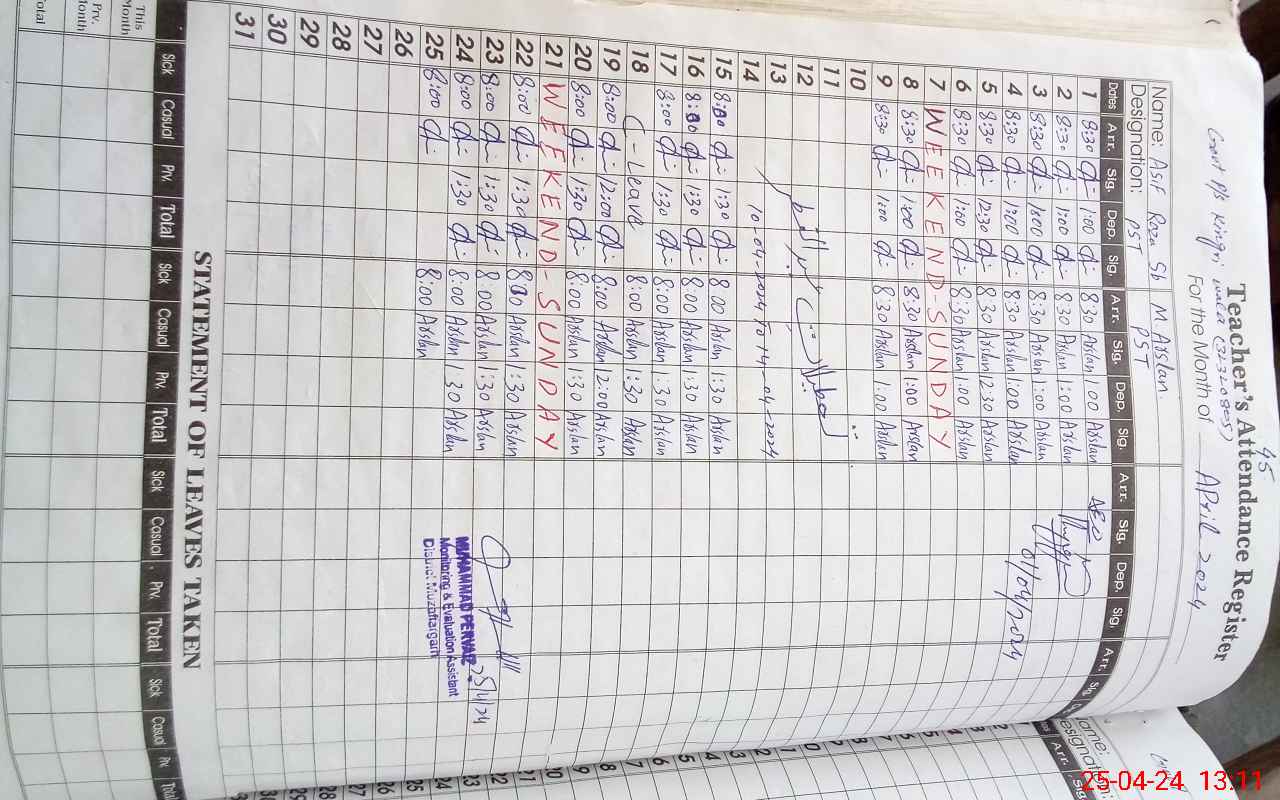 45
Teacher's Attendance Register
Govt P/S
wala (32320805) For the Month of April 2024
Name: Asif Raza Sb M. Arslan
Designation: PST PST
Dates Arr. Sig. Dep. Sig. Arr. Sig. Dep. Sig. Arr. Sig. Dep. Sig. Arr. Sig.
1 8:30 1:00 8:30 Arslan 1:00 Arslan AEO
2 8:30 1:00 8:30 Arslan 1:00 Arslan
3 8:30 1:00 8:30 Arslan 1:00 Arslan
4 8:30 1:00 8:30 Arslan 1:00 Arslan 01/04/2024
5 8:30 12:30 8:30 Arslan 12:30 Arslan
6 8:30 1:00 8:30 Arslan 1:00 Arslan
7 WEEKEND-SUNDAY
8 8:30 1:00 8:30 Arslan 1:00 Arslan
9 8:30 1:00 8:30 Arslan 1:00 Arslan
10
11
12
13
14 10-04-2024 To 14-04-2024
15 8:00 1:30 8:00 Arslan 1:30 Arslan
16 8:00 1:30 8:00 Arslan 1:30 Arslan
17 8:00 1:30 8:00 Arslan 1:30 Arslan
18 C-Leave 8:00 Arslan 1:30 Arslan
19 8:00 12:00 8:00 Arslan 12:00 Arslan
20 8:00 1:30 8:00 Arslan 1:30 Arslan
21 WEEKEND-SUNDAY
22 8:00 1:30 8:00 Arslan 1:30 Arslan
23 8:00 1:30 8:00 Arslan 1:30 Arslan
24 8:00 1:30 8:00 Arslan 1:30 Arslan
25 8:00 8:00 Arslan
26
27
28
29
30
31
25/4/24
MUHAMMAD PERVAIZ
Monitoring & Evaluation Assistant
District Muzaffargarh
STATEMENT OF LEAVES TAKEN
Sick Casual Prv. Total Sick Casual Prv. Total Sick Casual Prv. Total Sick Casual Prv. Total
This Month
Prv. Month
Total
Name:
Designation:
Arr. Sig.
25-04-24 13:11